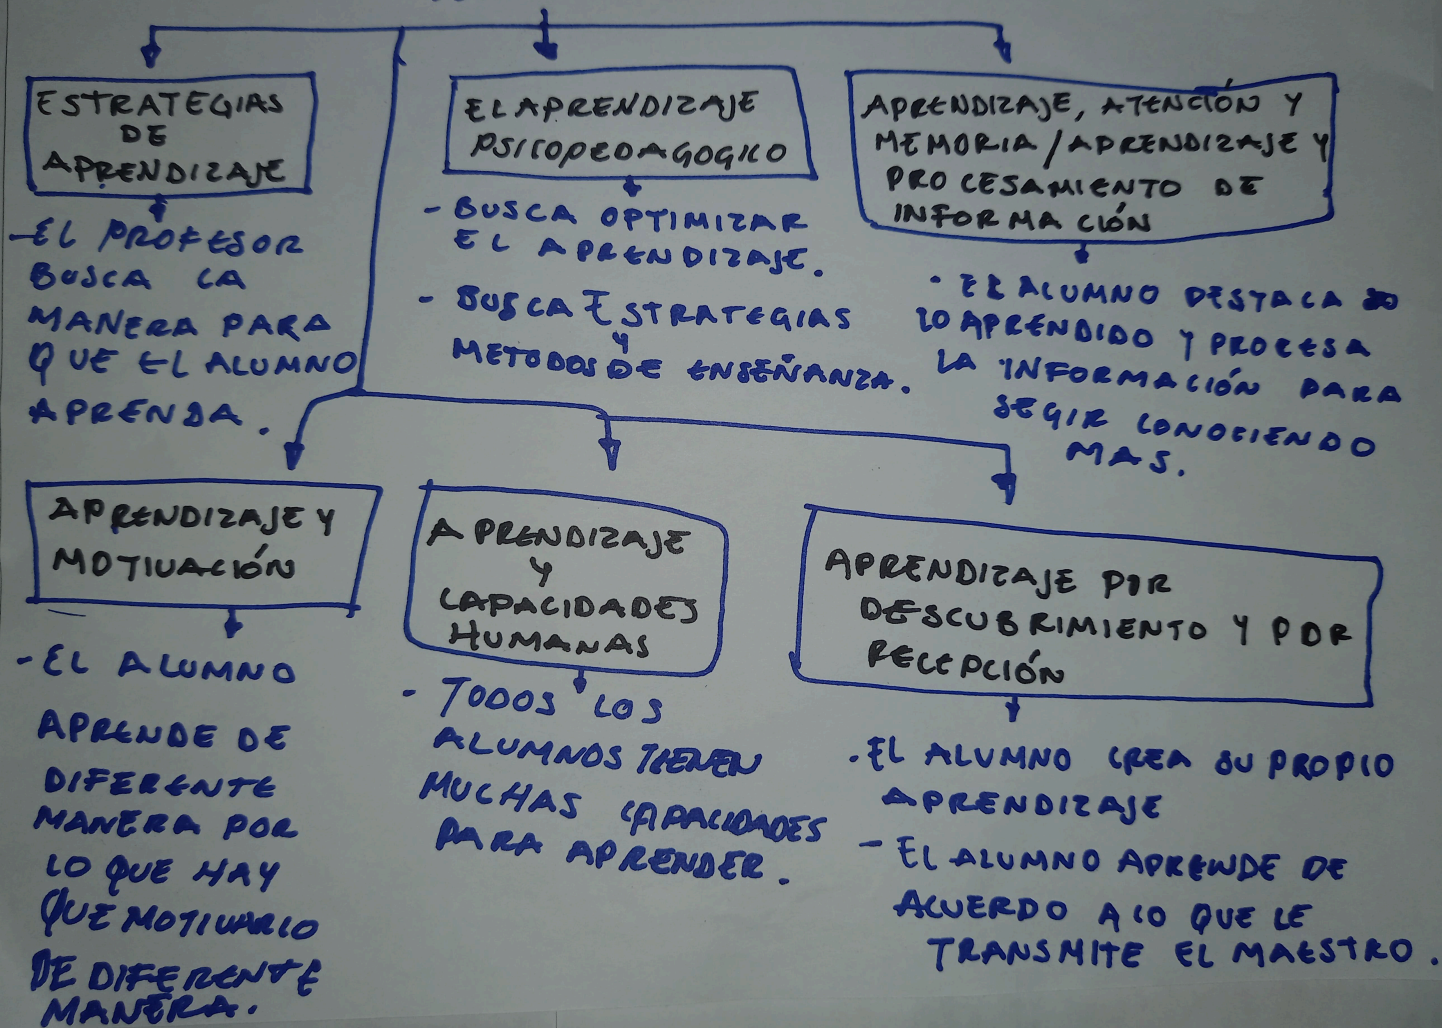 ESTRATEGIAS
DE
APRENDIZAJE
-EL PROFESOR
BUSCA LA
MANERA PARA
QUE EL ALUMNO
APRENDA.
EL APRENDIZAJE
PSICOPEDAGOGICO
- BUSCA OPTIMIZAR
EL APRENDIZAJE.
- BUSCA ESTRATEGIAS
Y
METODOS DE ENSEÑANZA.
APRENDIZAJE, ATENCIÓN Y
MEMORIA/APRENDIZAJE Y
PROCESAMIENTO DE
INFORMACIÓN
· EL ALUMNO DESTACA
LO APRENDIDO Y PROCESA
LA INFORMACIÓN PARA
SEGIR CONOCIENDO
MAS.
APRENDIZAJE Y
MOTIVACIÓN
- EL ALUMNO
APRENDE DE
DIFERENTE
MANERA POR
LO QUE HAY
QUE MOTIVARLO
DE DIFERENTE
MANERA.
APRENDIZAJE
Y
CAPACIDADES
HUMANAS
- TODOS LOS
ALUMNOS TIENEN
MUCHAS CAPACIDADES
PARA APRENDER.
APRENDIZAJE POR
DESCUBRIMIENTO Y POR
RECEPCIÓN
· EL ALUMNO CREA SU PROPIO
APRENDIZAJE
- EL ALUMNO APRENDE DE
ACUERDO A LO QUE LE
TRANSMITE EL MAESTRO.